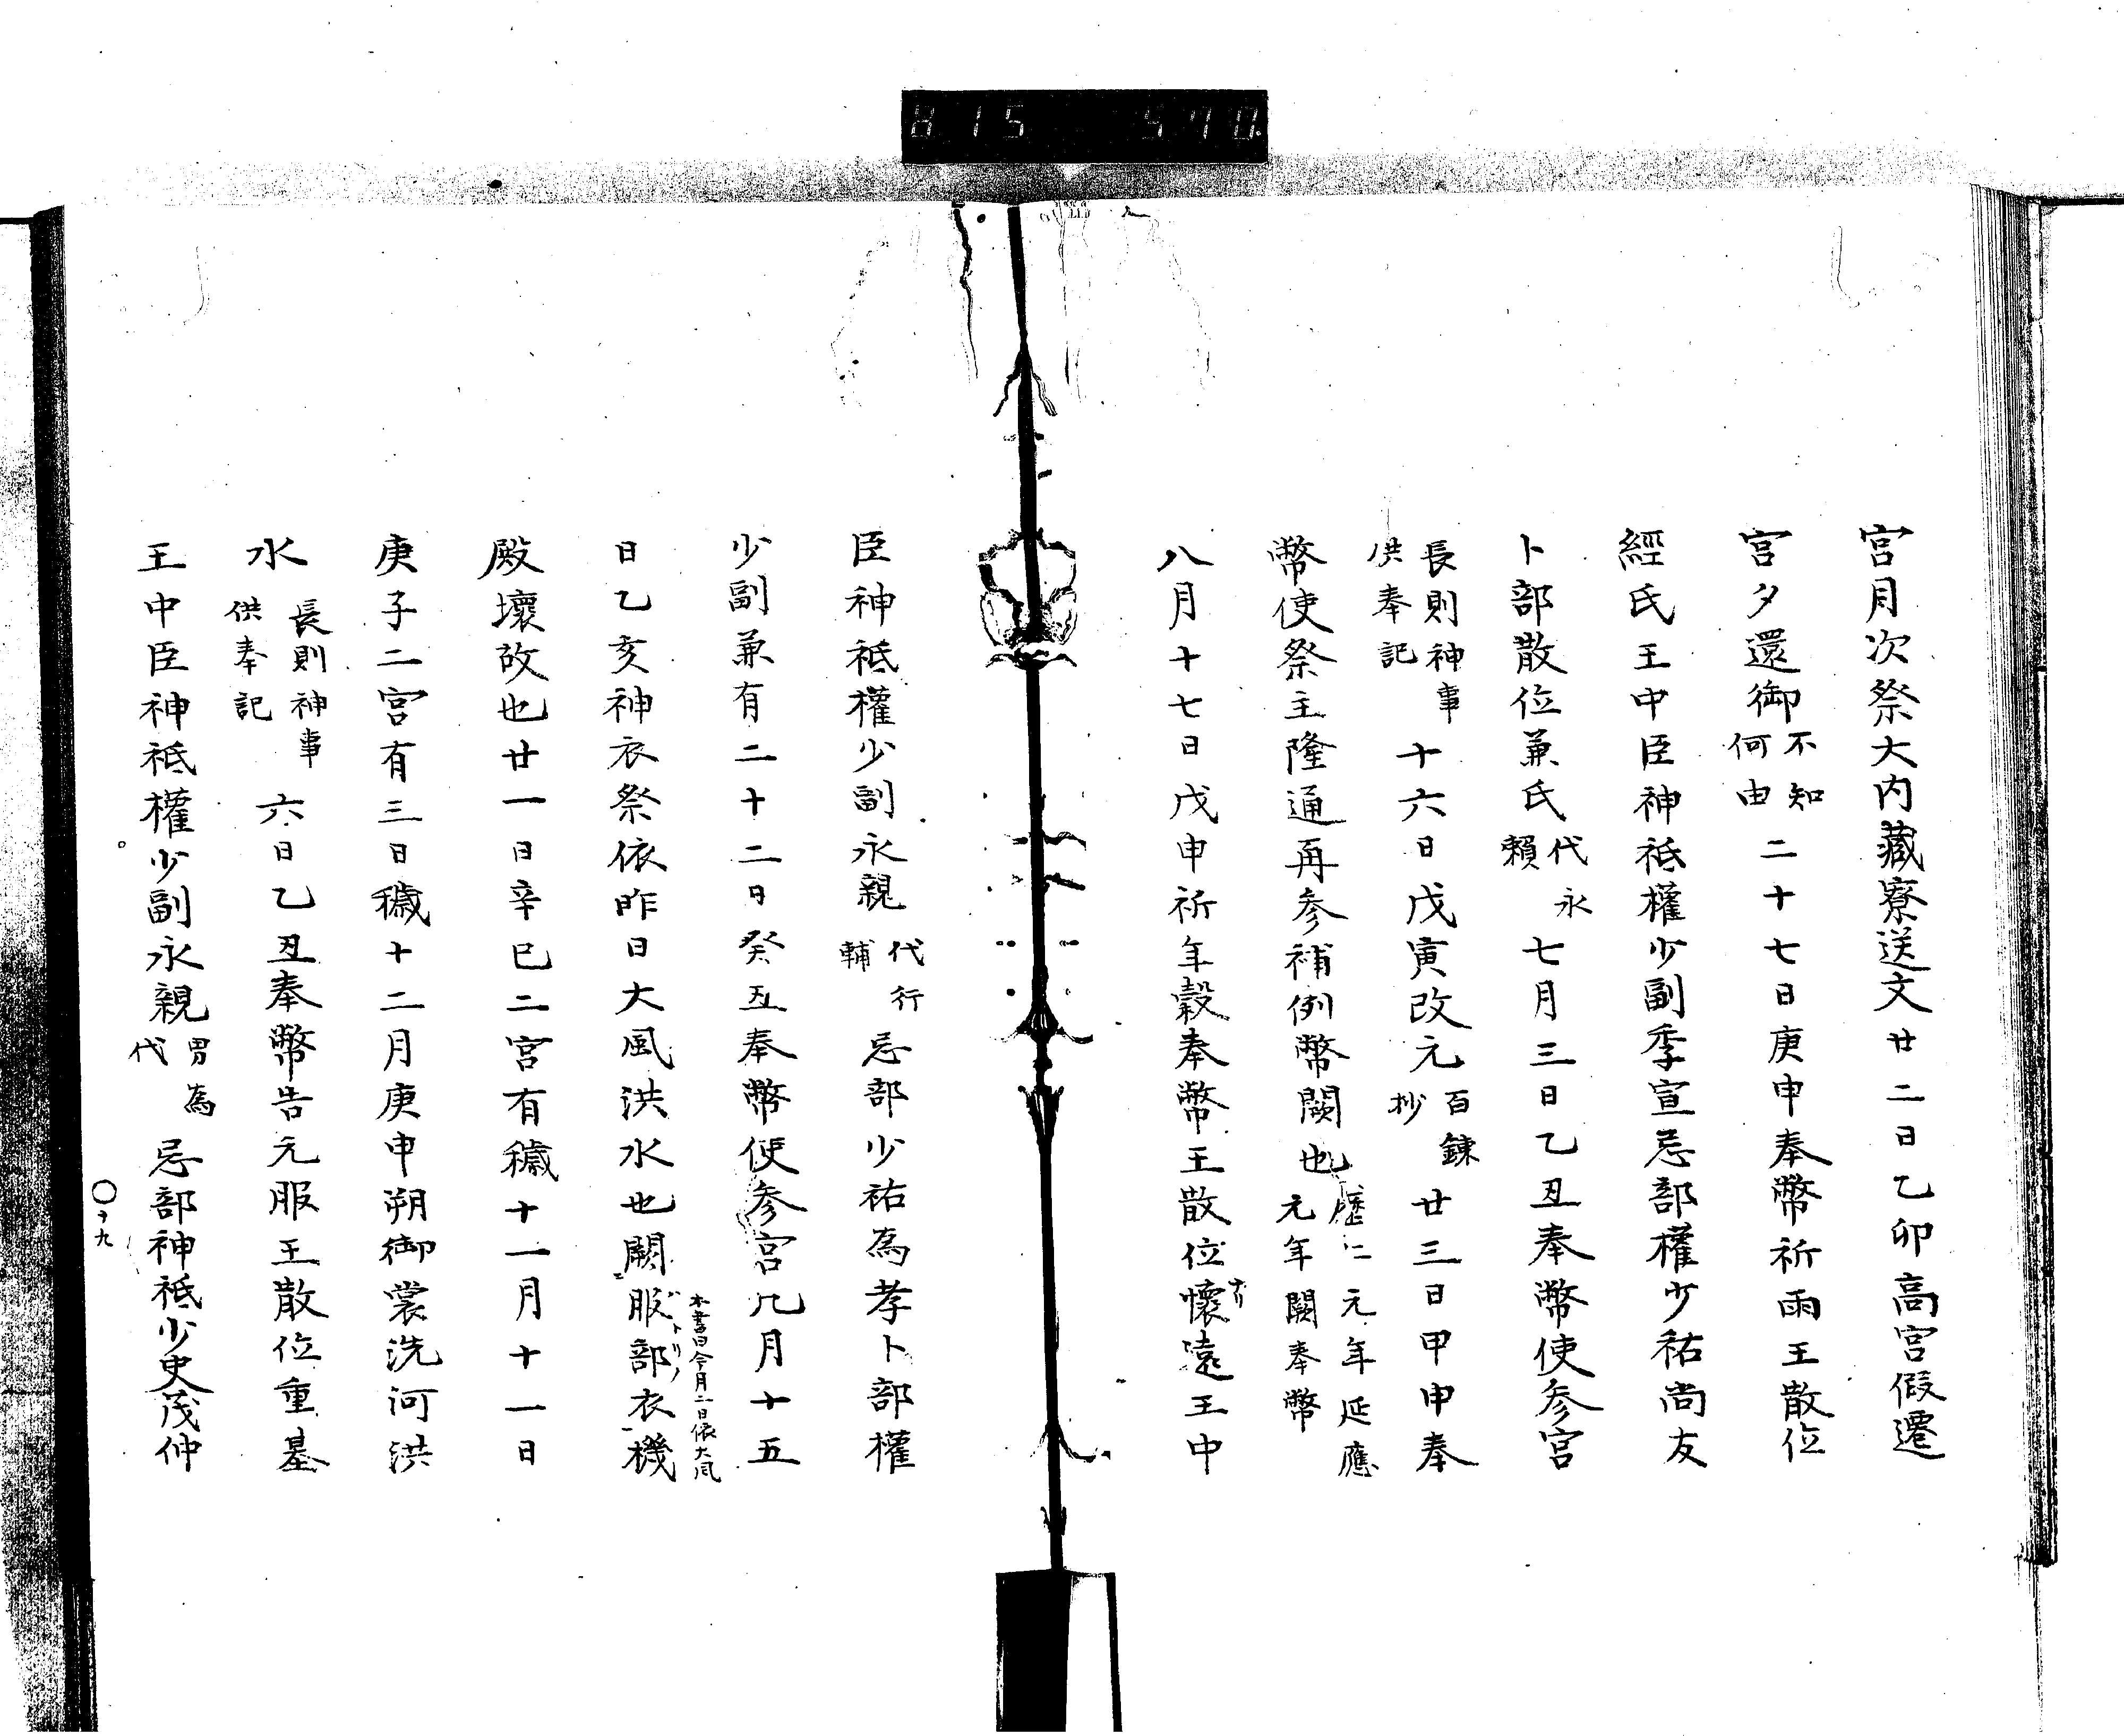 815 570.
宮月次祭大内藏寮送文廿二日乙卯高宮假遷
宮夕還御不知何由二十七日庚申奉幣祈雨王散位
經氏王中臣神祇權少副季宣忌部權少祐尚友
卜部散位兼氏代永賴七月三日乙丑奉幣使参宮
長則神事供奉記十六日戊寅改元百錬抄廿三日甲申奉
幣使祭主隆通再参補例幣闕也歷仁元年延應元年闕奉幣
八月十七日戊申祈年穀奉幣王散位懷遠王中
臣神祇權少副永親代行輔忌部少祐為孝卜部權
少副兼有二十二日癸丑奉幣使参宮九月十五
本書曰今月二日依大風
日乙亥神衣祭依昨日大風洪水也闕服部衣機
殿壞故也廿一日辛巳二宮有穢十一月十一日
庚子二宮有三日穢十二月庚申朔御裳洗河洪
水長則神事供奉記六日乙丑奉幣告元服王散位重基
王中臣神祇權少副永親男為代忌部神祇少史茂仲
〇十九